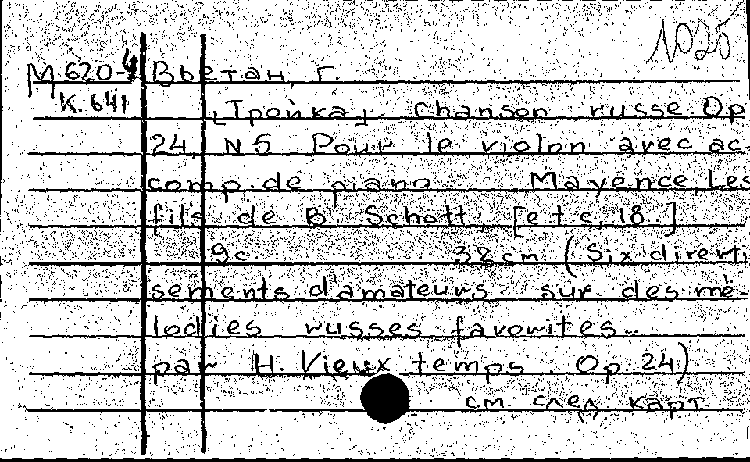 1025
М 620-4 Вьетан, Г.
К. 641
[Тройка]. Chanson russe. Op
24, N 5. Pour le violon avec ac-
comp. de piano. Mayence, Les
fils de B. Schott. [etc, 18..]
9с. 32 cm (Six diverti
sements d'amateurs sur des mè-
lodies russes favorites..
par H. Vieux temps. Op. 24)
см. след. карт.